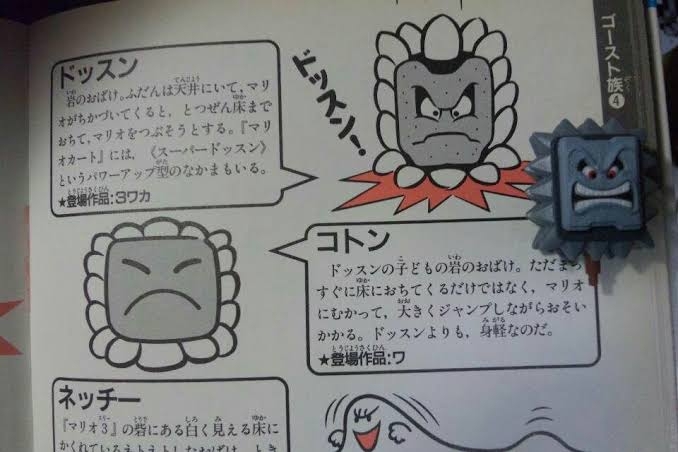 ゴースト族❹
ドッスン
岩のおばけ。ふだんは天井にいて、マリ
オがちかづいてくると、とつぜん床まで
おちて、マリオをつぶそうとする。『マリ
オカート』には、〈スーパードッスン〉
というパワーアップ型のなかまもいる。
★登場作品:3ワカ
ドッスン!
コトン
ドッスンの子どもの岩のおばけ。ただまっ
すぐに床におちてくるだけではなく、マリオ
にむかって、大きくジャンプしながらおそい
かかる。ドッスンよりも、身軽なのだ。
★登場作品:ワ
ネッチー
『マリオ3』の砦にある白く見える床に